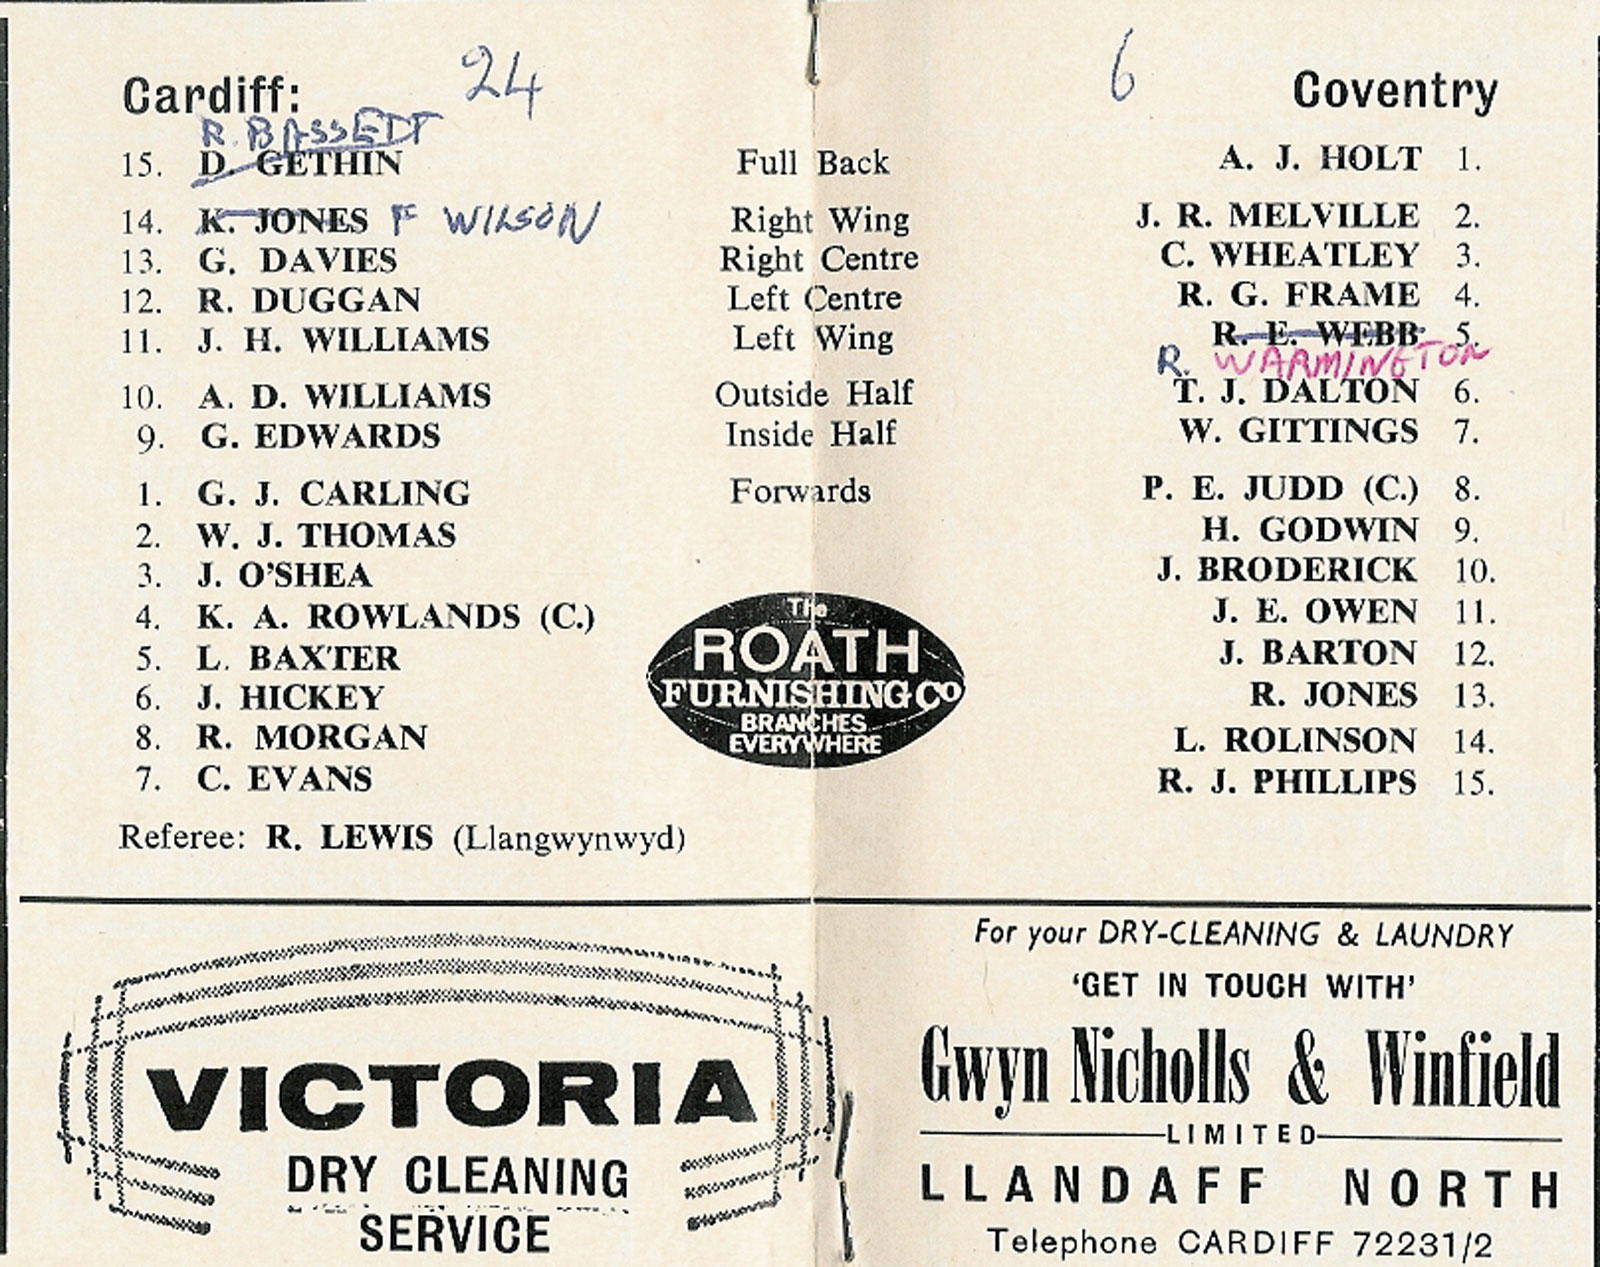 Cardiff: 24 6 Coventry
R. BASSEDT
15. D. GETHIN Full Back A. J. HOLT 1.
14. K. JONES F WILSON Right Wing J. R. MELVILLE 2.
13. G. DAVIES Right Centre C. WHEATLEY 3.
12. R. DUGGAN Left Centre R. G. FRAME 4.
11. J. H. WILLIAMS Left Wing R. E. WEBB 5.
R. WARMINGTON
10. A. D. WILLIAMS Outside Half T. J. DALTON 6.
9. G. EDWARDS Inside Half W. GITTINGS 7.
1. G. J. CARLING Forwards P. E. JUDD (C.) 8.
2. W. J. THOMAS H. GODWIN 9.
3. J. O'SHEA J. BRODERICK 10.
4. K. A. ROWLANDS (C.) J. E. OWEN 11.
5. L. BAXTER J. BARTON 12.
6. J. HICKEY R. JONES 13.
8. R. MORGAN L. ROLINSON 14.
7. C. EVANS R. J. PHILLIPS 15.
The
ROATH
FURNISHING Co
BRANCHES
EVERYWHERE
Referee: R. LEWIS (Llangwynwyd)
VICTORIA
DRY CLEANING
SERVICE
For your DRY-CLEANING & LAUNDRY
'GET IN TOUCH WITH'
Gwyn Nicholls & Winfield
LIMITED
LLANDAFF NORTH
Telephone CARDIFF 72231/2